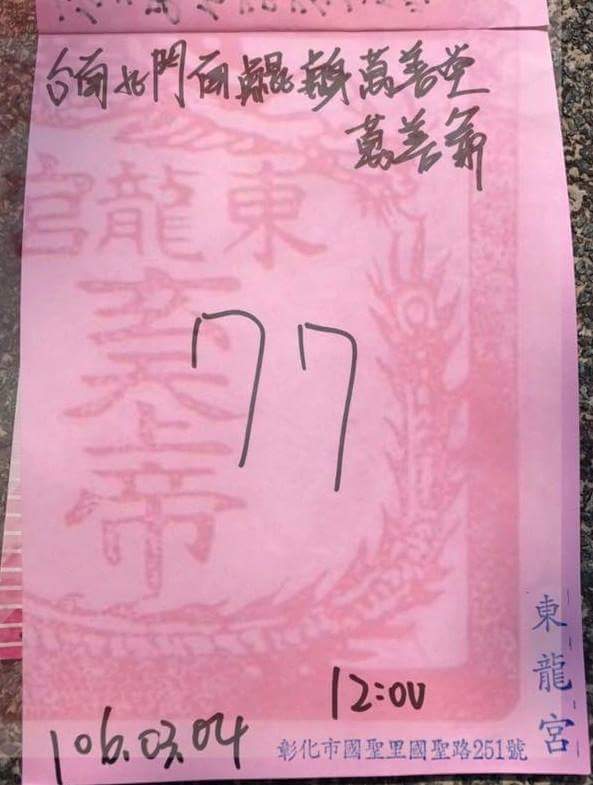 台南北門南鯤鯓萬善堂
萬善爺
東龍宮
玄天上帝
77
12:00
106.03.04
彰化市國聖里國聖路251號
東龍宮